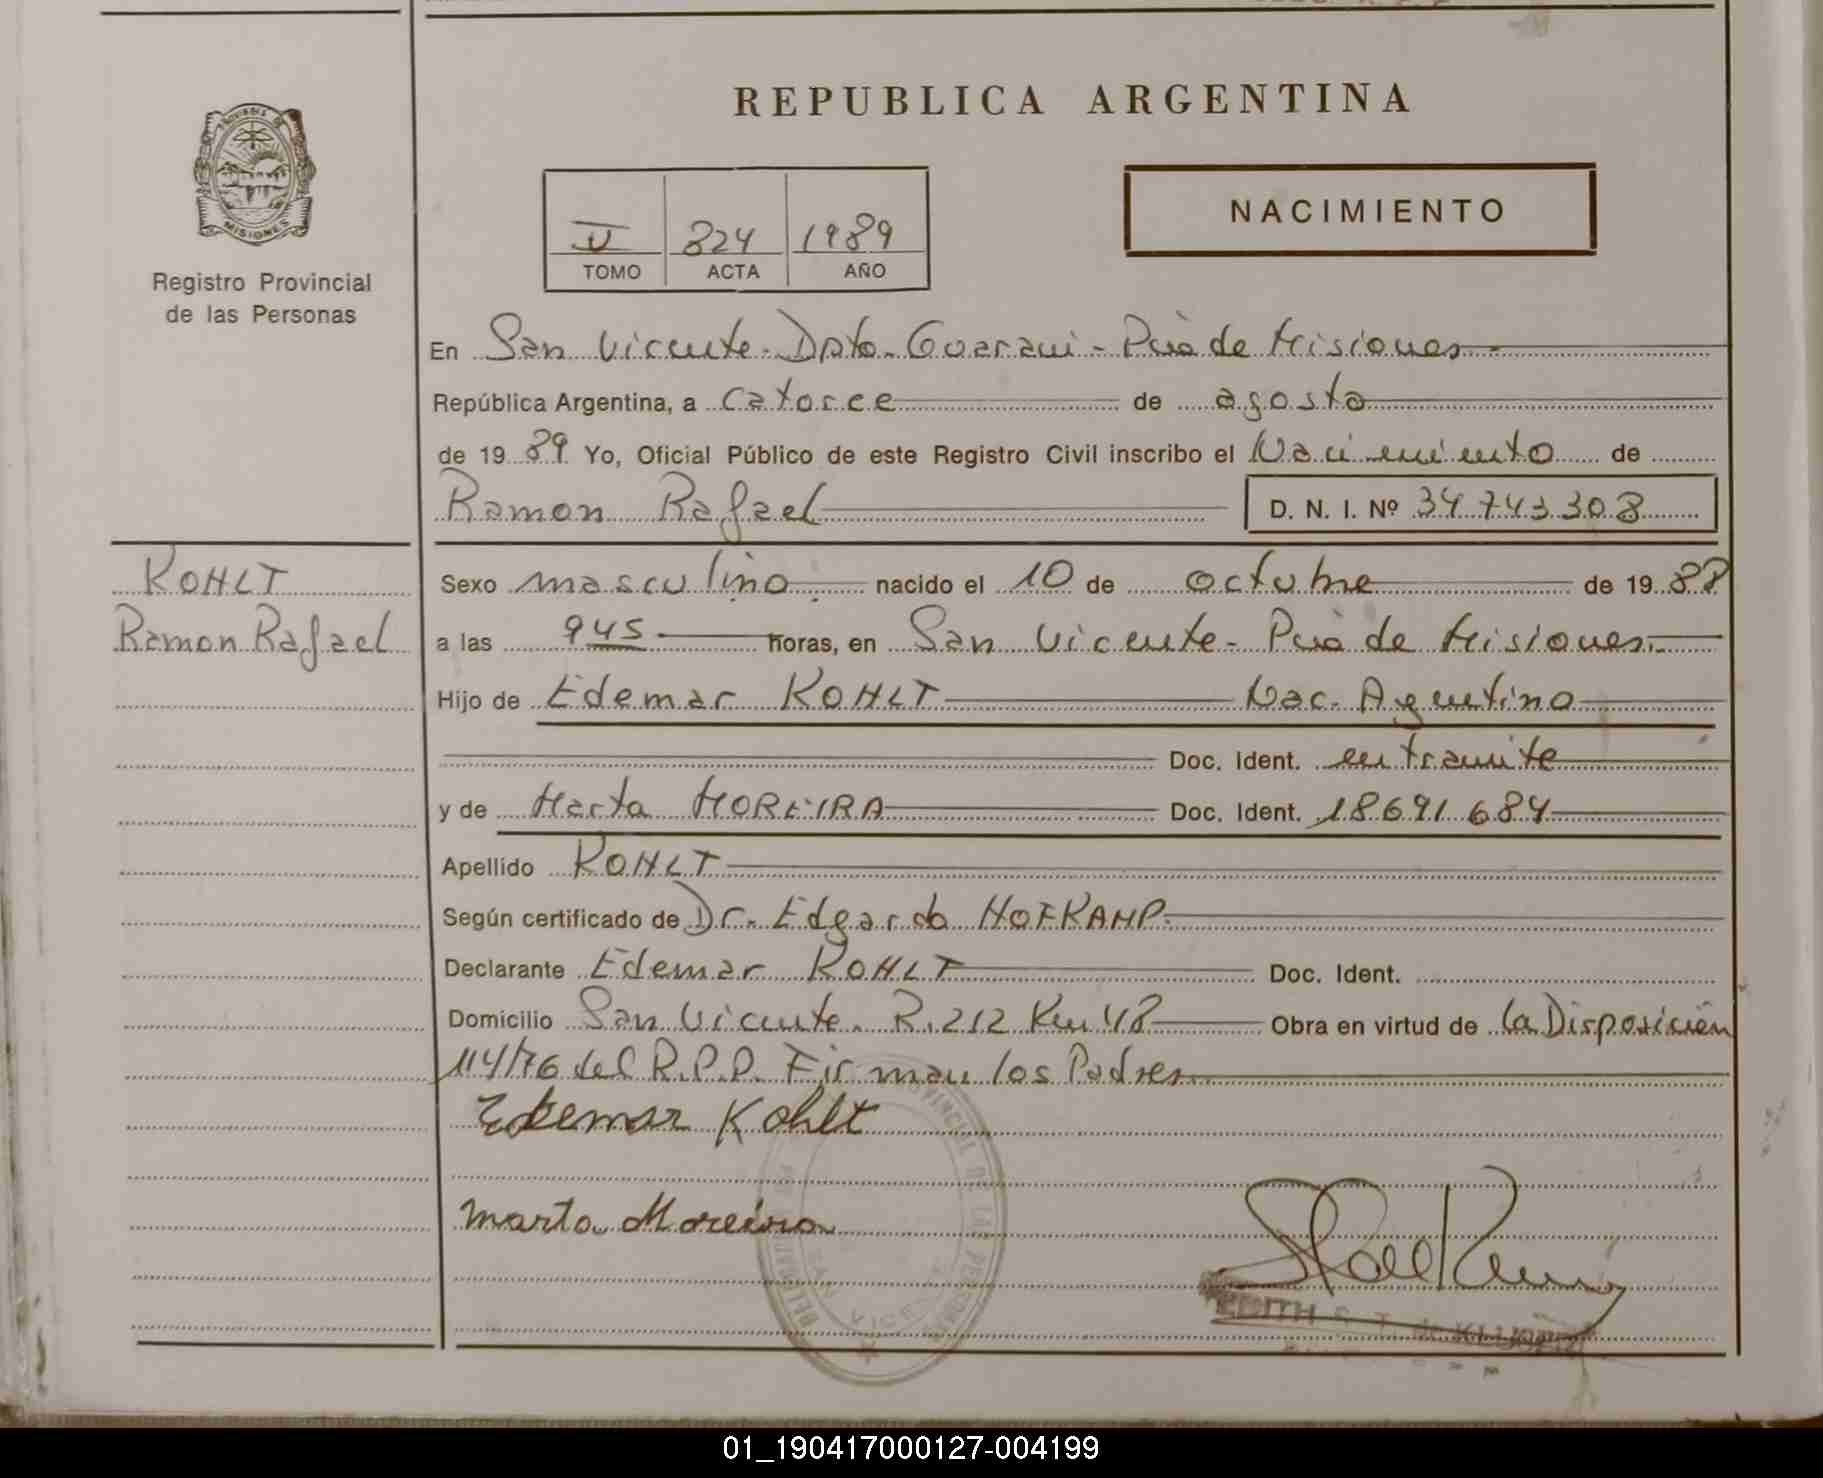 REPUBLICA ARGENTINA
MISIONES
Registro Provincial
de las Personas
NACIMIENTO
II 824 1989
TOMO ACTA AÑO
En San Vicente - Dpto. Guarani - Pcia de Misiones
República Argentina, a catorce de agosto
de 1989 Yo, Oficial Público de este Registro Civil inscribo el Nacimiento de
Ramon Rafael D. N. I. Nº 34 743 308
KOHLT
Ramon Rafael
Sexo masculino nacido el 10 de octubre de 1988
a las 945 horas, en San Vicente - Pcia de Misiones
Hijo de Edemar KOHLT Nac. Argentino
Doc. Ident. en tramite
y de Marta MOREIRA Doc. Ident. 18691684
Apellido KOHLT
Según certificado de Dr. Edgardo HOFKAMP
Declarante Edemar KOHLT Doc. Ident.
Domicilio San Vicente. R.212 Km 48 Obra en virtud de la Disposición
114/76 del R.P.P. Firman los Padres
Edemar Kohlt
Marta Moreira
EDITH
01_190417000127-004199